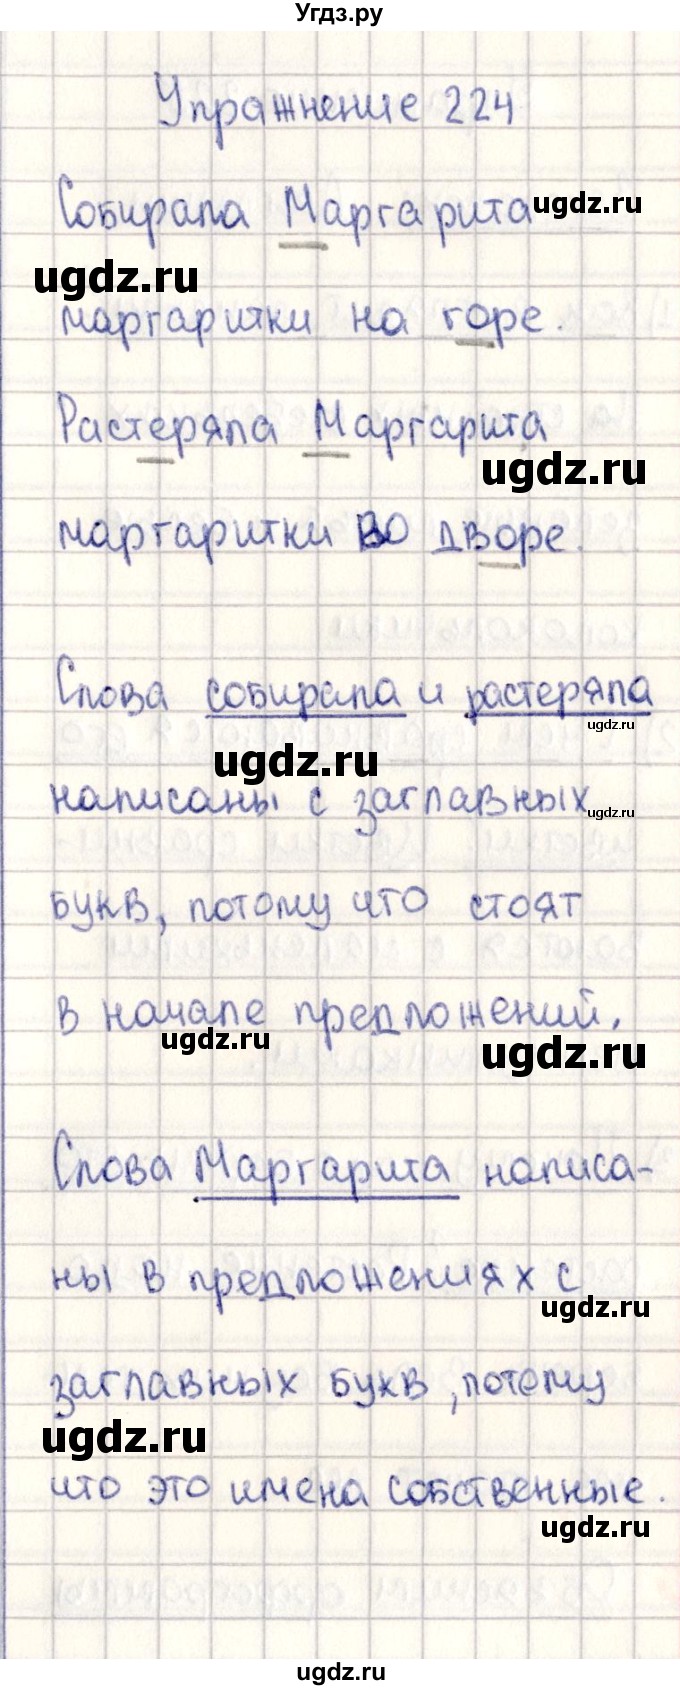 Угдз.ру
Упражнение 224
Собирала Маргарита
ugdz.ru
ugdz.ru
маргаритки на горе.
Растеряла Маргарита
ugdz.ru
маргаритки во дворе.
Слова собирала и растеряла
ugdz.ru
ugdz.ru
написаны с заглавных
ugdz.ru
букв, потому что стоят
в начале предложений.
ugdz.ru
ugdz.ru
Слова Маргарита написа-
ны в предложениях с
ugdz.ru
заглавных букв, потому
ugdz.ru
что это имена собственные.
ugdz.ru
ugdz.ru